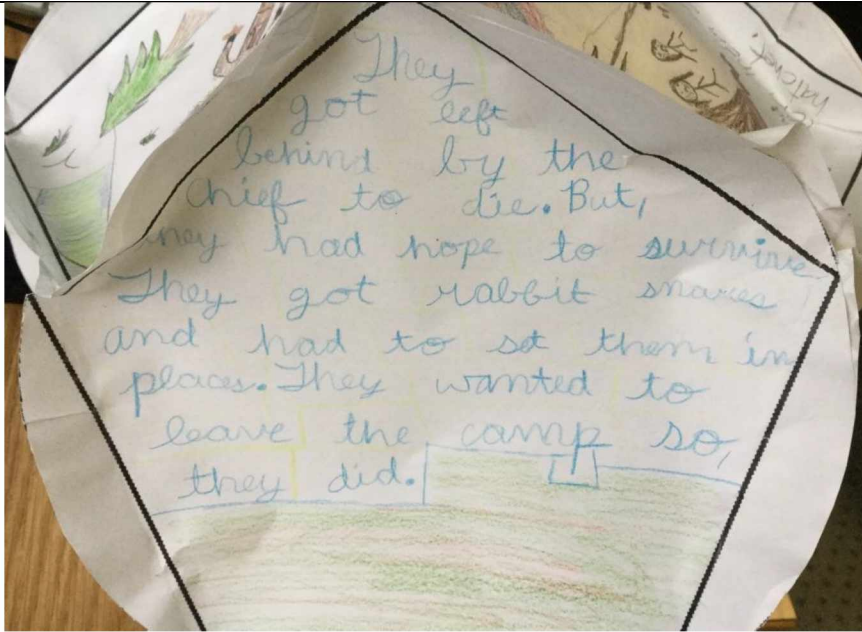 They
got left
behind by the
chief to die. But,
they had hope to survive
They got rabbit snares
and had to set them in
places. They wanted to
leave the camp so,
they did.
hatchet.